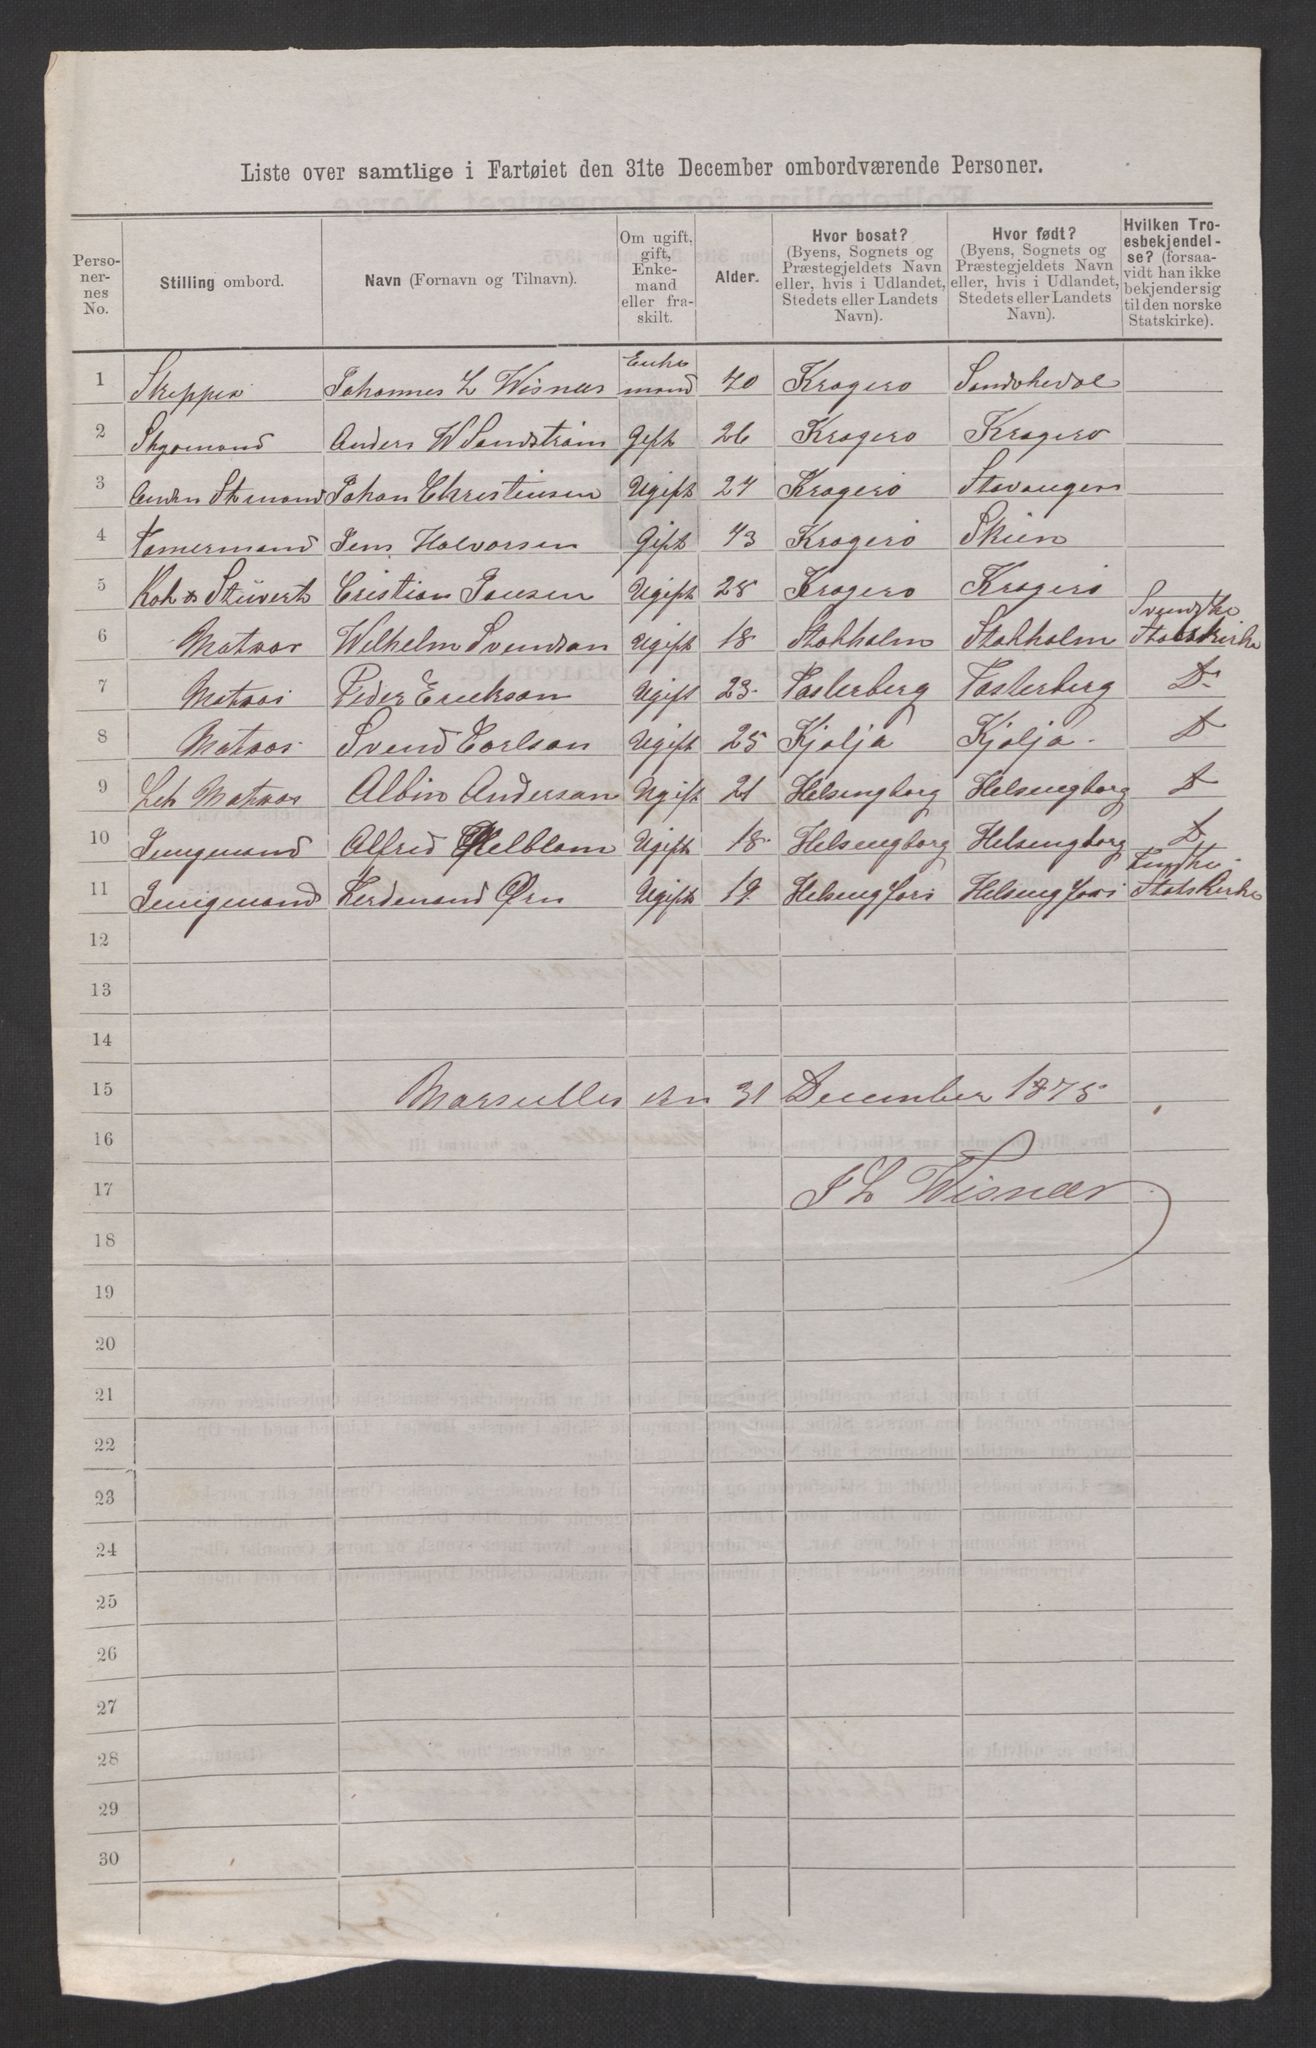 Liste over samtlige i Fartøiet den 31te December ombordværende Personer.
Personernes No. | Stilling ombord. | Navn (Fornavn og Tilnavn). | Om ugift, gift, Enkemand eller fraskilt. | Alder. | Hvor bosat? (Byens, Sognets og Præstegjeldets Navn eller, hvis i Udlandet, Stedets eller Landets Navn). | Hvor født? (Byens, Sognets og Præstegjeldets Navn eller, hvis i Udlandet, Stedets eller Landets Navn). | Hvilken Troesbekjendelse? (forsaavidt han ikke bekjender sig til den norske Statskirke).
1 Skipper Johannes L Wisnæs Enkemand 40 Kragerø Sandøkedal
2 Styrmand Anders W Sandstrøm Gift 26 Kragerø Kragerø
3 Anden Stmand Johan Christiensen Ugift 27 Kragerø Stavanger
4 Tømermand Jens Halvorsen Gift 43 Kragerø Skien
5 Kok & Stuvert Cristian Jensen Ugift 28 Kragerø Kragerø
6 Matros Wilhelm Svendsan Ugift 18 Stokholm Stokholm Svendske Statskirke
7 Matros Peder Erickson Ugift 23 Vasterberg Vasterberg D
8 Matros Svend Carlson Ugift 25 Kjølja Kjølja D
9 Let Matros Albin Anderson Ugift 21 Helsingborg Helsingborg D
10 Jungmand Alfred Kjelblom Ugift 18 Helsingborg Helsingborg D
11 Jungmand Ferdenand Ørn Ugift 19 Helsingfors Helsingfors Finske Statskirke
12
13
14
15 Marseilles den 31 December 1875
16
17 J L Wisnæs
18
19
20
21
22
23
24
25
26
27
28
29
30